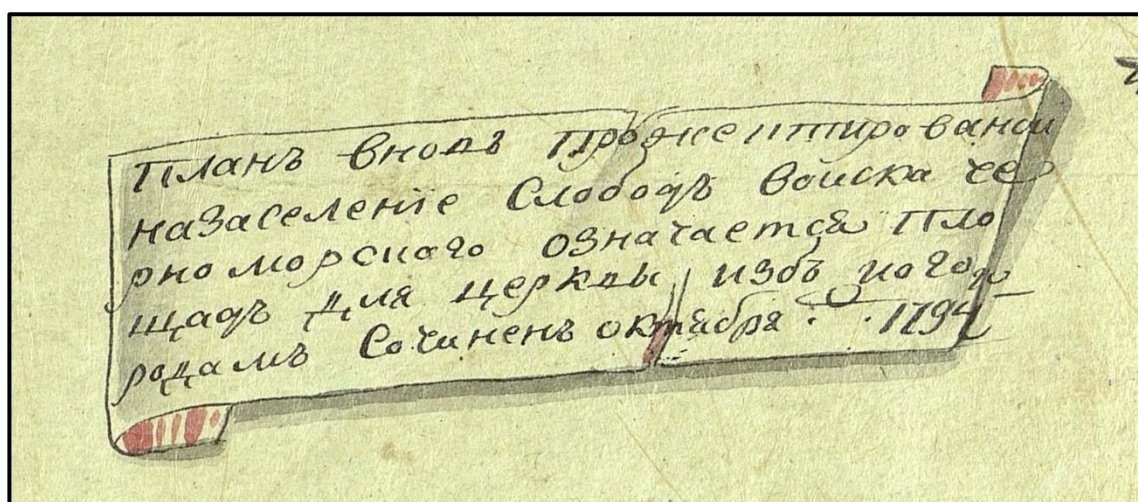 Планъ вновь прожентированои
назаселенiе Слободъ Воиска че
рноморскаго означается пло
щадъ для церквы избъ иого
родамъ Сочиненъ октября 1794